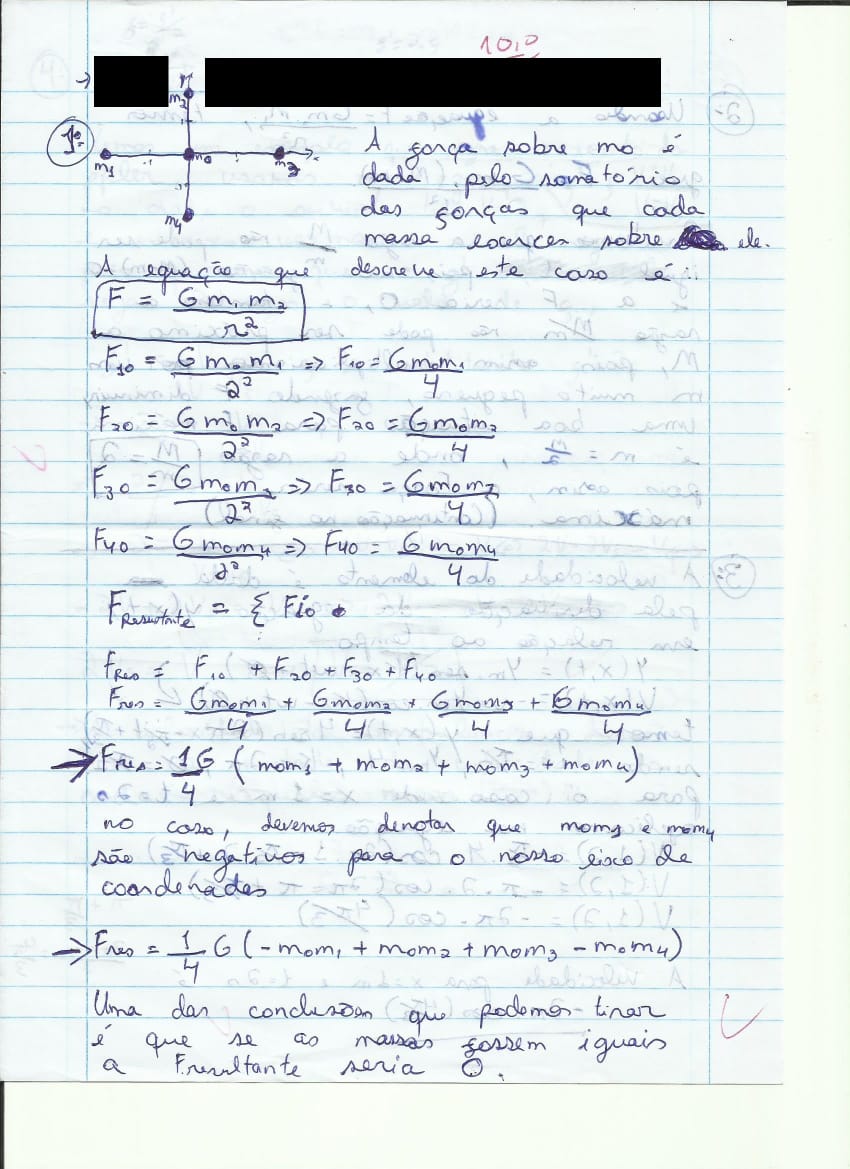 10,0
y
m2
1º
m1
m0
m3
x
m4
A força sobre mo é
dada pelo somatório
das forças que cada
massa exerce sobre ele.
A equação que descreve este caso é:
F = G m1 m2 / r²
F10 = G mo m1 / 2² => F10 = G mo m1 / 4
F20 = G mo m2 / 2² => F20 = G mo m2 / 4
F30 = G mo m3 / 2² => F30 = G mo m3 / 4
F40 = G mo m4 / 2² => F40 = G mo m4 / 4
FResultante = Σ Fio
FRes = F10 + F20 + F30 + F40
Fres = G mo m1 / 4 + G mo m2 / 4 + G mo m3 / 4 + G mo m4 / 4
→ Fres = 1/4 G (mom1 + mom2 + mom3 + mom4)
no caso, devemos denotar que mom1 e mom4
são negativos para o nosso eixo de
coordenadas
→ Fres = 1/4 G (-mom1 + mom2 + mom3 - mom4)
Uma das conclusões que podemos tirar
é que se as massas fossem iguais
a Fresultante seria 0.